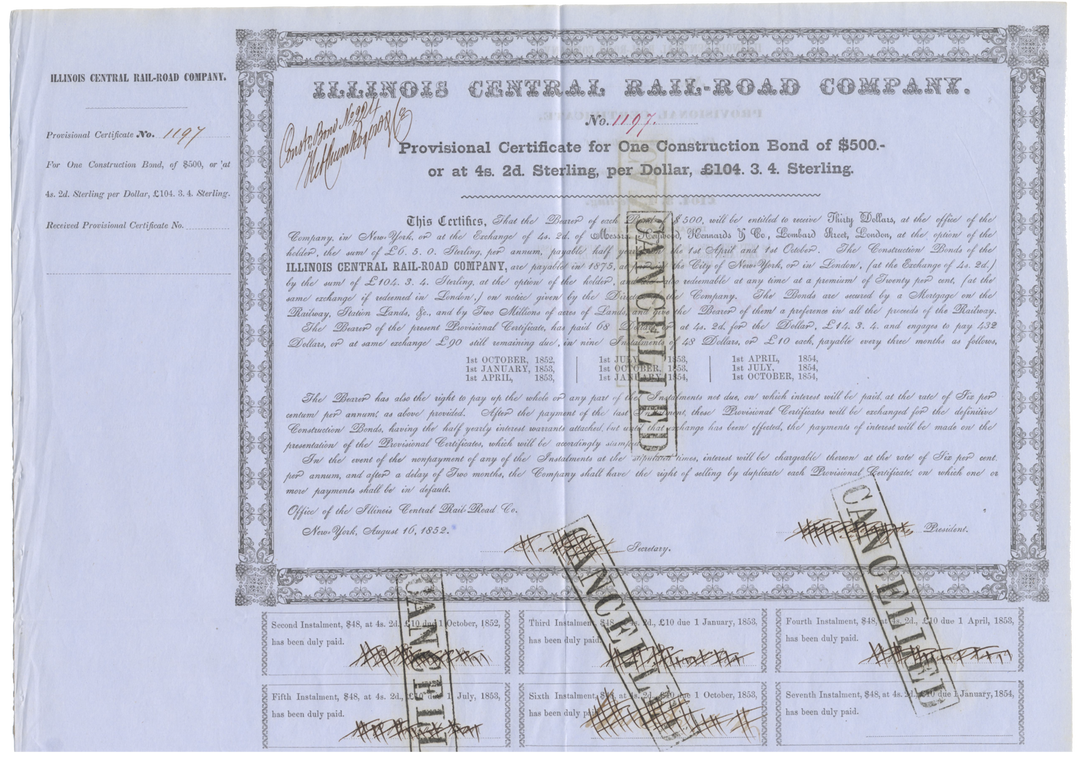 ILLINOIS CENTRAL RAIL-ROAD COMPANY.
Provisional Certificate No. 1197
For One Construction Bond, of $500, or at
4s. 2d. Sterling per Dollar, £104. 3. 4. Sterling.
Received Provisional Certificate No.
ILLINOIS CENTRAL RAIL-ROAD COMPANY.
No. 1197.
Provisional Certificate for One Construction Bond of $500.-
or at 4s. 2d. Sterling, per Dollar, £104. 3. 4. Sterling.
This Certifies, That the Bearer of each $500, will be entitled to receive Thirty Dollars, at the office of the
Company, in New-York, or at the Exchange of 4s. 2d. of Messrs. Kennards & Co., Lombard Street, London, at the option of the
holder, the sum of £6. 5. 0. Sterling, per annum, payable half the 1st April and 1st October. The Construction Bonds of the
ILLINOIS CENTRAL RAIL-ROAD COMPANY, are payable in 1875, at the City of New-York, or in London, (at the Exchange of 4s. 2d.)
by the sum of £104. 3. 4. Sterling, at the option of the holder, redeemable at any time at a premium of Twenty per cent, (at the
same exchange if redeemed in London,) on notice given by the Company. The Bonds are secured by a Mortgage on the
Railway, Station Lands, &c., and by Two Millions of acres of Lands, and give the Bearer of them a preference in all the proceeds of the Railway.
The Bearer of the present Provisional Certificate, has paid 68 at 4s. 2d. for the Dollar, £14. 3. 4. and engages to pay 432
Dollars, or at same exchange £90 still remaining due, in nine Instalments of 48 Dollars, or £10 each, payable every three months as follows,
1st OCTOBER, 1852, 1st JULY, 1853, 1st APRIL, 1854,
1st JANUARY, 1853, 1st OCTOBER, 1853, 1st JULY, 1854,
1st APRIL, 1853, 1st JANUARY, 1854, 1st OCTOBER, 1854,
The Bearer has also the right to pay up the whole or any part of the Instalments not due, on which interest will be paid at the rate of Six per
centum per annum; as above provided. After the payment of the last Instalment, these Provisional Certificates will be exchanged for the definitive
Construction Bonds, having the half yearly interest warrants attached, but until that exchange has been effected, the payments of interest will be made on the
presentation of the Provisional Certificates, which will be accordingly stamped.
In the event of the nonpayment of any of the Instalments at the stipulated times, interest will be chargeable thereon at the rate of Six per cent.
per annum, and after a delay of Two months, the Company shall have the right of selling by duplicate each Provisional Certificate, on which one or
more payments shall be in default.
Office of the Illinois Central Rail-Road Co.
New-York, August 16, 1852.
President.
Secretary.
CANCELLED
CANCELLED
CANCELLED
CANCELLED
Second Instalment, $48, at 4s. 2d., £10 due 1 October, 1852,
has been duly paid.
Third Instalment, $48, at 4s. 2d., £10 due 1 January, 1853.
has been duly paid.
Fourth Instalment, $48, at 4s. 2d., £10 due 1 April, 1853,
has been duly paid.
Fifth Instalment, $48, at 4s. 2d., £10 due 1 July, 1853,
has been duly paid.
Sixth Instalment, $48, at 4s. 2d., £10 due 1 October, 1853,
has been duly paid.
Seventh Instalment, $48, at 4s. 2d., £10 due 1 January, 1854,
has been duly paid.